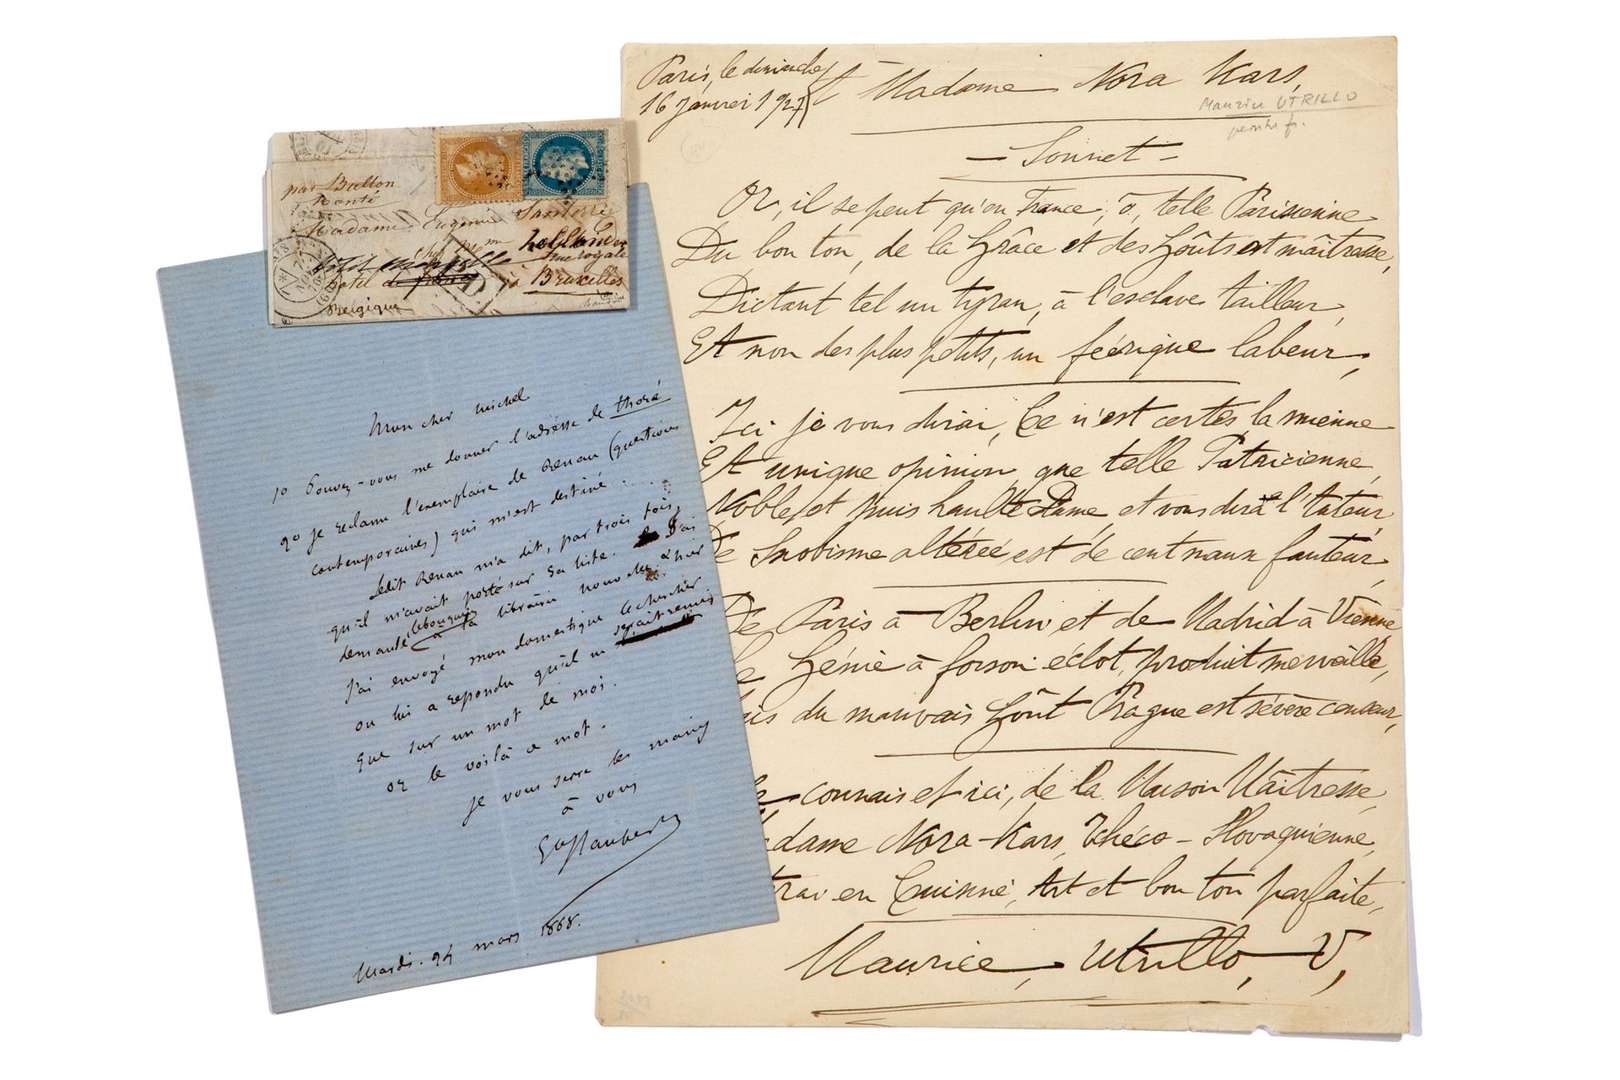 par Ballon
Monté
Madame Eugénie
Hôtel
hotel de france à Bruxelles
rue royale
Belgique
Mon cher Michel
1o Pouvez-vous me donner l'adresse de Thoré
2o je reclame l'exemplaire de Renan (questions
contemporaines) qui m'est destiné.....
Ledit Renan m'a dit, par trois fois,
qu'il m'avait porté sur sa liste. J'ai
demandé le bouquin à la librairie nouvelle & hier
j'ai envoyé mon domestique le chercher
on lui a repondu qu'il ne serait remis
que sur un mot de moi.
or le voilà ce mot.
je vous serre les mains
à vous
G Flaubert
Mardi. 24 mars 1868.
Paris, le dimanche
16 Janvier 1927
à Madame Nora Kars,
Maurice UTRILLO
peintre fr.
— Sonnet —
Or, il se peut qu'en France, ô, telle Parisienne
Du bon ton, de la Grâce et des Goûts est maîtresse,
Dictant tel un tyran, à l'esclave tailleur,
Et non des plus petits, un féérique labeur,
Ici je vous dirai, Ce n'est certes la mienne
Et unique opinion, que telle Patricienne,
Noble, et puis haulte Dame et vous dira l'
De Snobisme altérée est de cent maux fauteur,
De Paris à Berlin et de Madrid à Vienne
Le Génie à foison éclot, produit merveille,
du mauvais Goût Prague est sévère censeur,
connais et ici, de la Maison Maîtresse,
Madame Nora-Kars, Tchéco-Slovaquienne,
en Cuisine, Art et bon ton parfaite,
Maurice, Utrillo, V,